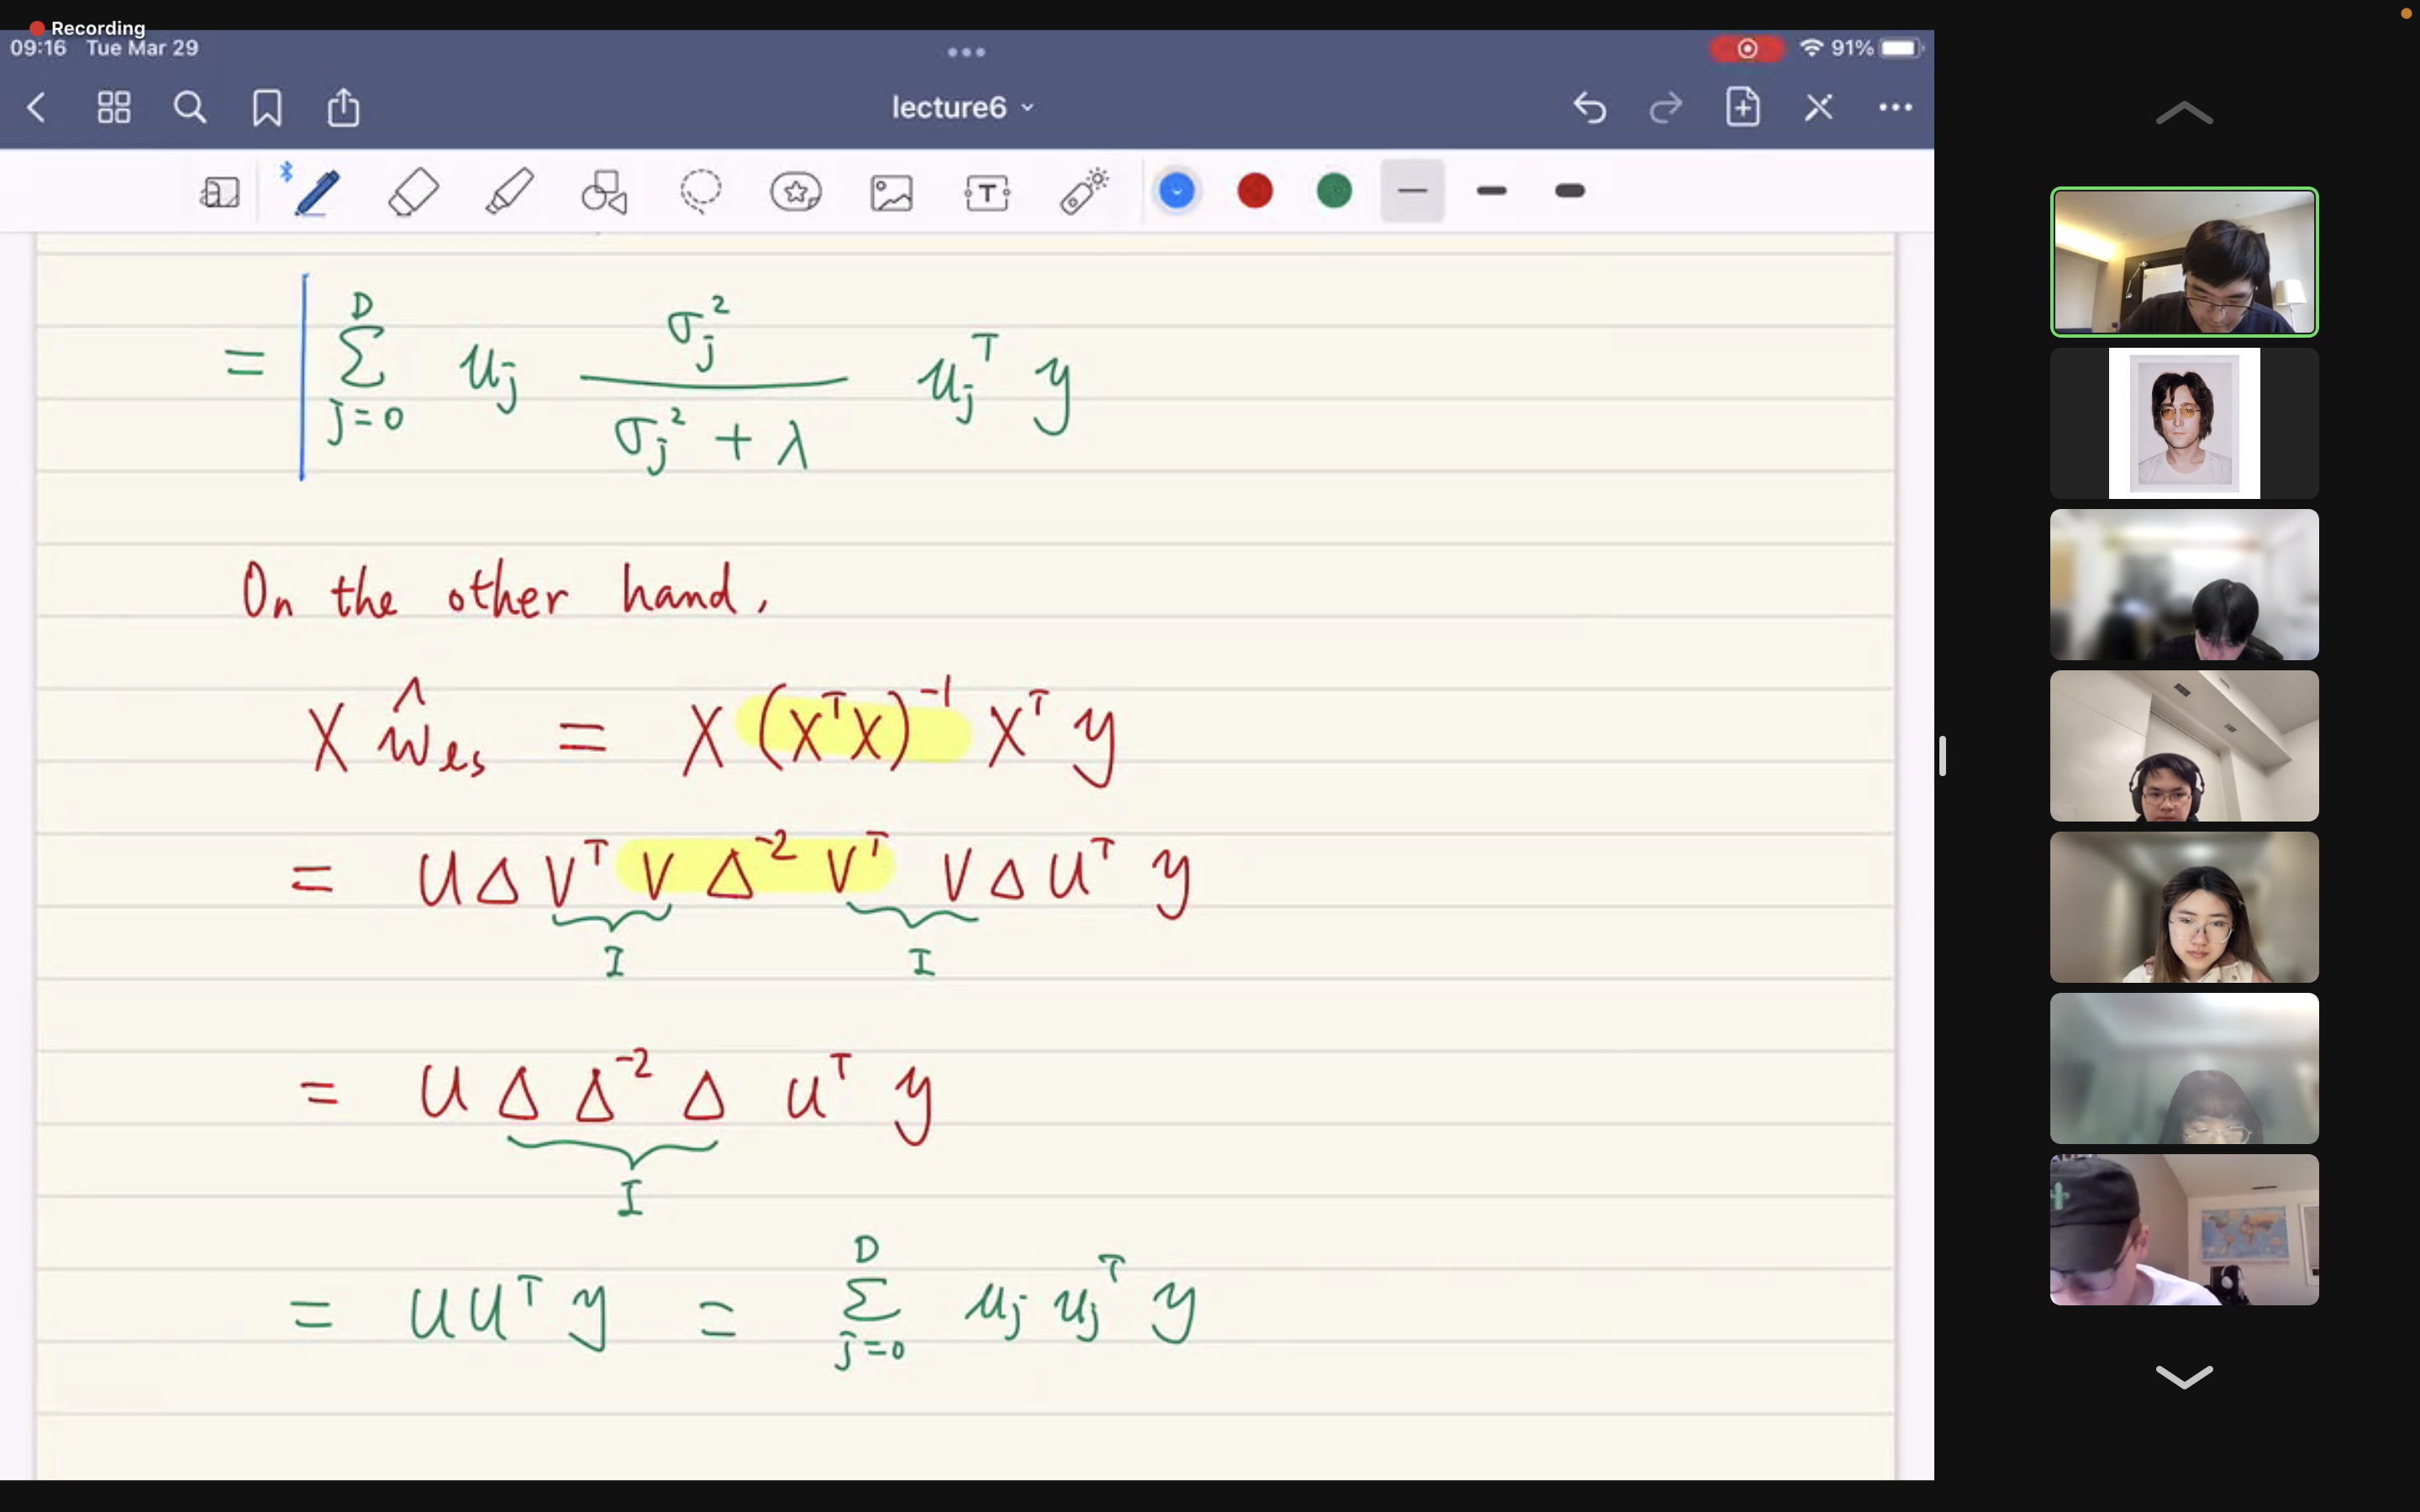 Recording
09:16 Tue Mar 29
91%
lecture6
T
= \sum_{j=0}^{D} u_j \frac{\sigma_j^2}{\sigma_j^2 + λ} u_j^T y
On the other hand,
X ŵ_{es} = X (X^T X)^{-1} X^T y
= U Δ V^T V Δ^{-2} V^T V Δ U^T y
I I
= U Δ Δ^{-2} Δ U^T y
I
= U U^T y = \sum_{j=0}^{D} u_j u_j^T y